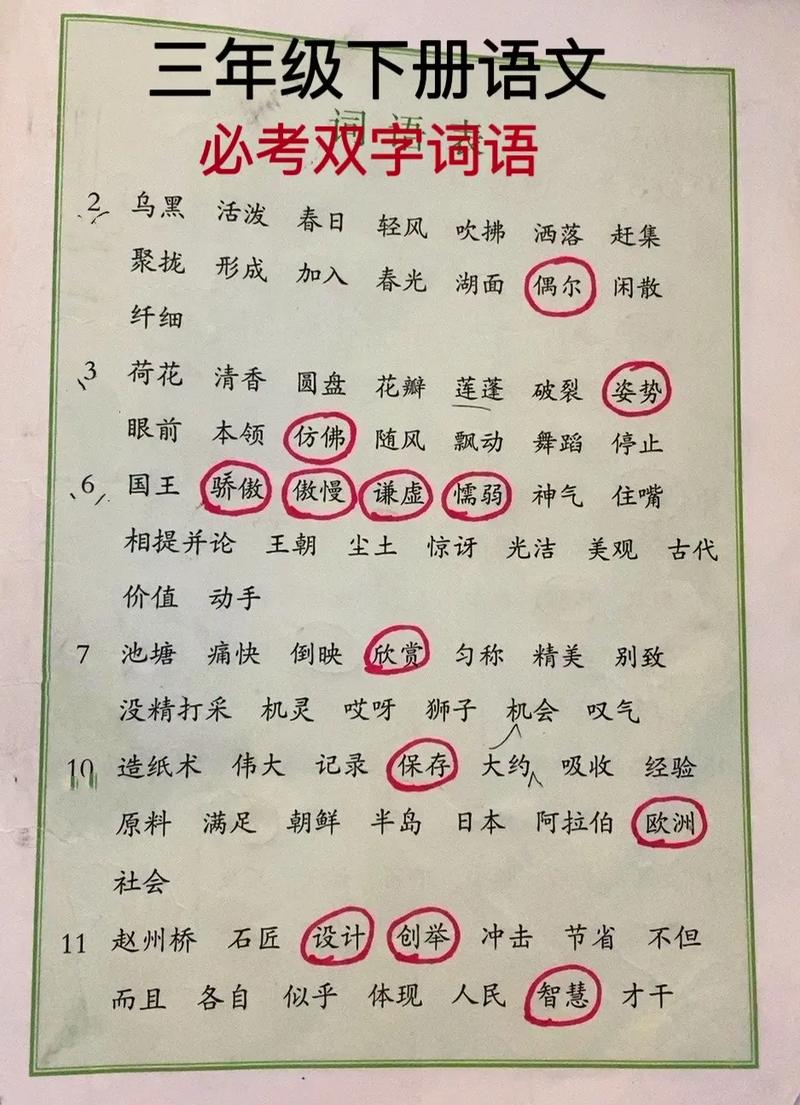 三年级下册语文
词语表
必考双字词语
2 乌黑 活泼 春日 轻风 吹拂 洒落 赶集
聚拢 形成 加入 春光 湖面 偶尔 闲散
纤细
3 荷花 清香 圆盘 花瓣 莲蓬 破裂 姿势
眼前 本领 仿佛 随风 飘动 舞蹈 停止
6 国王 骄傲 傲慢 谦虚 懦弱 神气 住嘴
相提并论 王朝 尘土 惊讶 光洁 美观 古代
价值 动手
7 池塘 痛快 倒映 欣赏 匀称 精美 别致
没精打采 机灵 哎呀 狮子 机会 叹气
10 造纸术 伟大 记录 保存 大约 吸收 经验
原料 满足 朝鲜 半岛 日本 阿拉伯 欧洲
社会
11 赵州桥 石匠 设计 创举 冲击 节省 不但
而且 各自 似乎 体现 人民 智慧 才干